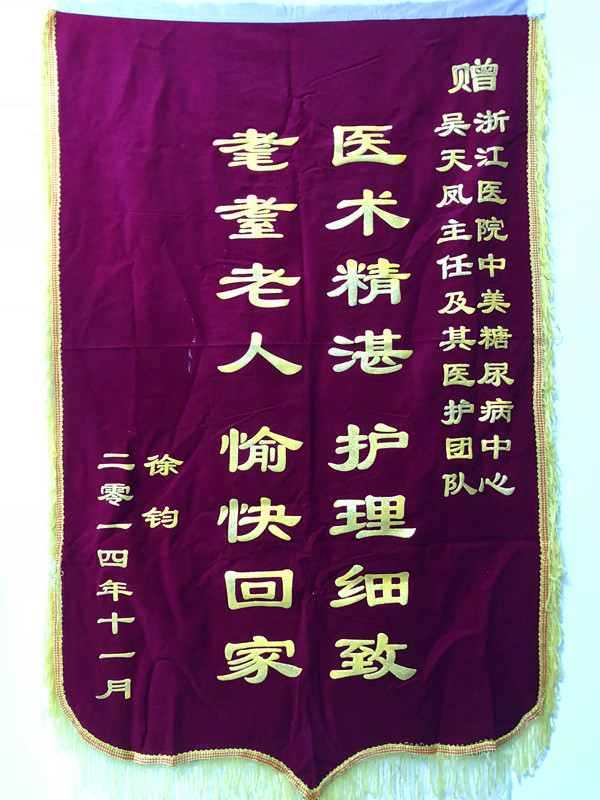 赠
浙江医院中美糖尿病中心
吴天凤主任及其医护团队
医术精湛 护理细致
耄耋老人 愉快回家
徐钧
二零一四年十一月